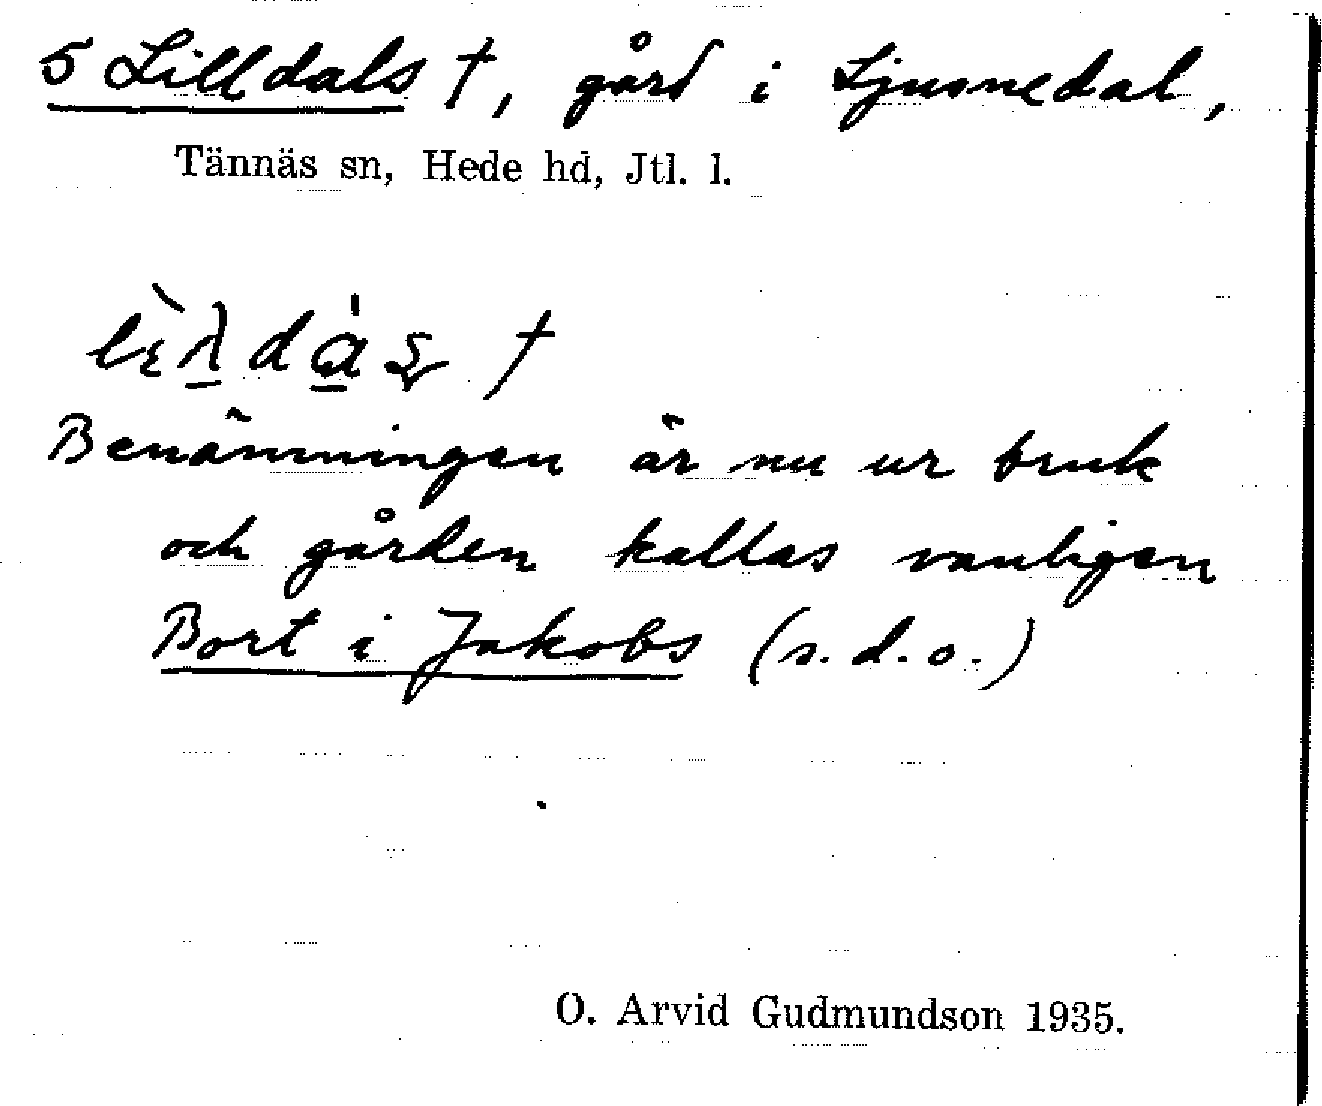 5 Lilldals †, gård i Ljusnedal,
Tännäs sn, Hede hd, Jtl. l.
†
Benämningen är nu ur bruk
och gården kallas vanligen
Bort i Jakobs (s.d.o.)
O. Arvid Gudmundson 1935.